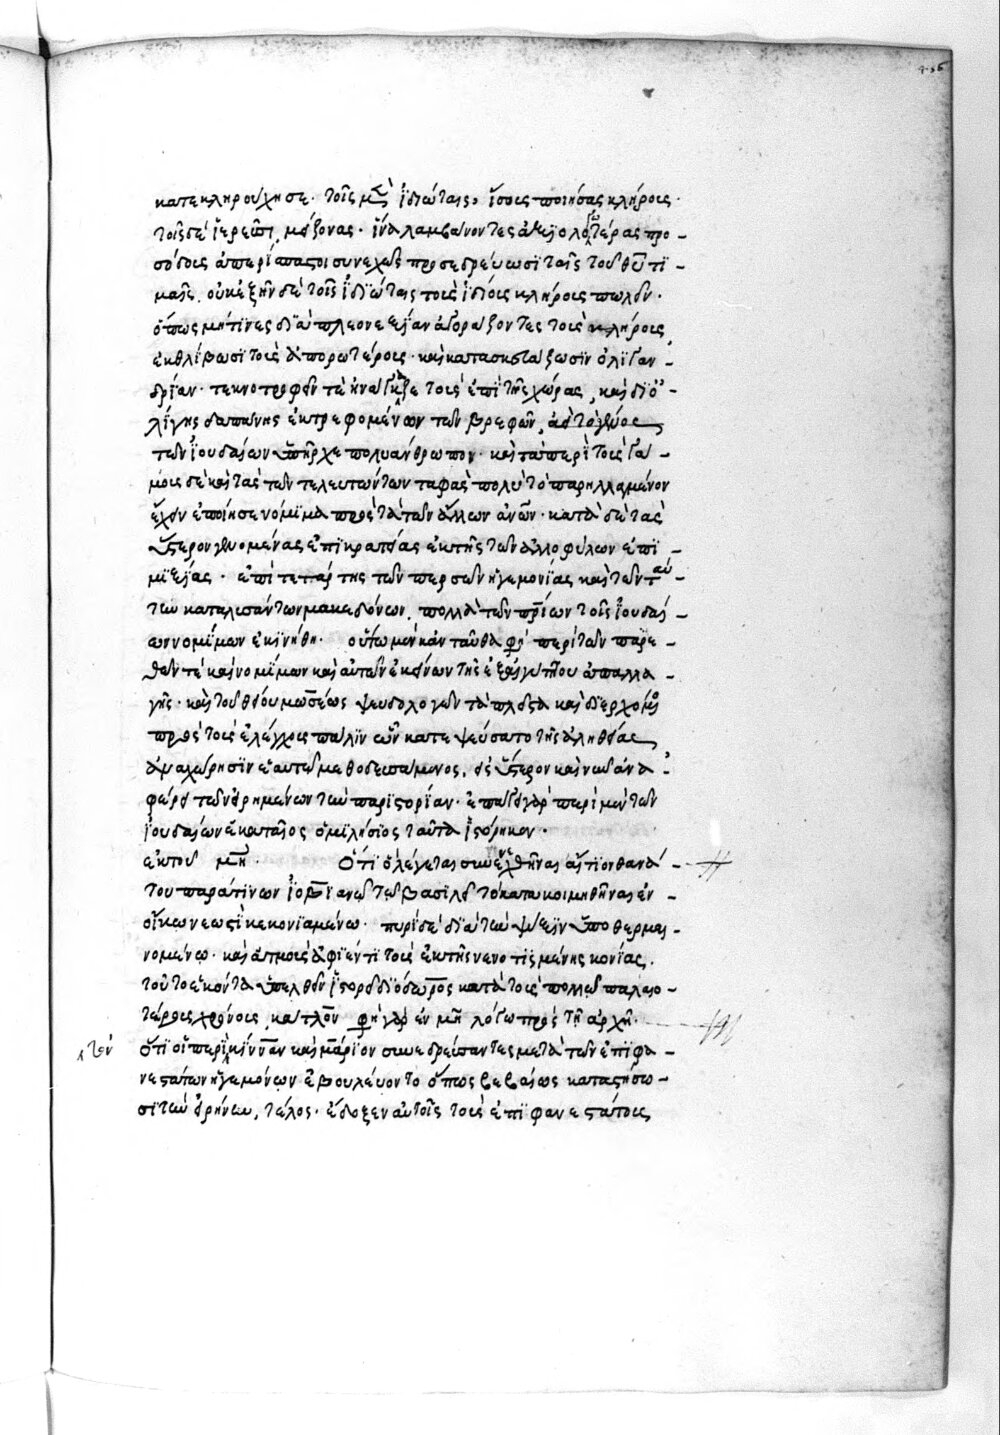 κατεκληρούχησε· τοῖς μὲν ἰδιώταις ἴσους ποιήσας κλήρους·
τοῖς δὲ ἱερεῦσι μείζονας· ἵνα λαμβάνοντες ἀξιολογωτέρας προ-
σόδους ἀπερίσπαστοι συνεχῶς προσεδρεύωσι ταῖς τοῦ θυ τι-
μαῖς. οὐκ ἐξῆν δὲ τοῖς ἰδιώταις τοὺς ἰδίους κλήρους πωλεῖν·
ὅπως μή τινες διὰ πλεονεξίαν ἀγοράζοντες τοὺς κλήρους,
ἐκθλίβωσι τοὺς ἀπορωτέρους· καὶ κατασκευάζωσιν ὀλιγαν-
δρίαν· τεκνοτροφεῖν τε ἠνάγκαζε τοὺς ἐπὶ τῆς χώρας, καὶ δι ὀ-
λίγης δαπάνης ἐκτρεφομένων τῶν βρεφῶν, ἀεὶ τὸ γένος
τῶν ἰουδαίων ὑπῆρχε πολυάνθρωπον· καὶ τὰ περὶ τοὺς γά-
μους δὲ καὶ τὰς τῶν τελευτώντων ταφὰς πολὺ τὸ παρηλλαγμένον
ἔχειν ἐποίησε νόμιμα πρὸς τὰ τῶν ἄλλων ἀνων· κατὰ δὲ τὰς
ὕστερον γενομένας ἐπικρατείας ἐκ τῆς τῶν ἀλλοφύλων ἐπι-
μιξίας· ἐπί τε τῆς τῶν περσῶν ἡγεμονίας καὶ τῶν ταύ-
την καταλυσάντων μακεδόνων, πολλὰ τῶν πρίων τοῖς ἰουδαί
ων νομίμων ἐκινήθη· οὕτω μὲν κἀνταῦθα φη περὶ τῶν παρ ἑ-
θῶν τε καὶ νομίμων καὶ αὐτῶν ἐκείνων τῆς ἐξ αἰγύπτου ἀπαλλα-
γῆς· καὶ τοῦ θείου μωσέως ψευδολογῶν τὰ πλεῖστα καὶ διερχόμε
πρὸς τοὺς ἐλέγχους πάλιν ὧν κατεψεύσατο τῆς ἀληθείας
ἀναχώρησιν ἑαυτῷ μεθοδευσάμενος,
φέρει τῶν εἰρημένων τὴν παριστορίαν· ἐπάγει γὰρ περὶ μὲν τῶν
ἰουδαίων ἑκαταῖος ὁ μιλήσιος ταῦτα ἱστόρηκεν·
ἐκ τοῦ μη· Ὅτι ὁ λέγεται συνενεχθῆναι αἴτιον θανά-
του παρά τινων ἰοβιανῷ τῷ βασιλεῖ τὸ κατακοιμηθῆναι ἐν
οἴκῳ νεωστὶ κεκονιαμένῳ· πυρὶ δὲ διὰ τὴν ψύξιν ὑποθερμαι-
νομένῳ· καὶ ἀτμοὺς ἀφιέντι τοὺς ἐκ τῆς νενοτισμένης κονίας.
τοῦτο ἑκόντα ὑπελθεῖν ἱστορεῖ διόδωρος κατὰ τοὺς πολλῷ παλαιο-
τέρους χρόνους κάτλον φη γὰρ ἐν μη λόγῳ πρὸς τῇ ἀρχῇ·
ὅτι οἱ περὶ κίνναν καὶ μάριον συνεδρεύσαντες μετὰ τῶν ἐπιφα-
τὸν
νεστάτων ἡγεμόνων ἐβουλεύοντο ὅπως βεβαίως καταστήσω-
σι τὴν εἰρήνην, τέλος· ἔδοξεν αὐτοῖς τοὺς ἐπιφανεστάτους